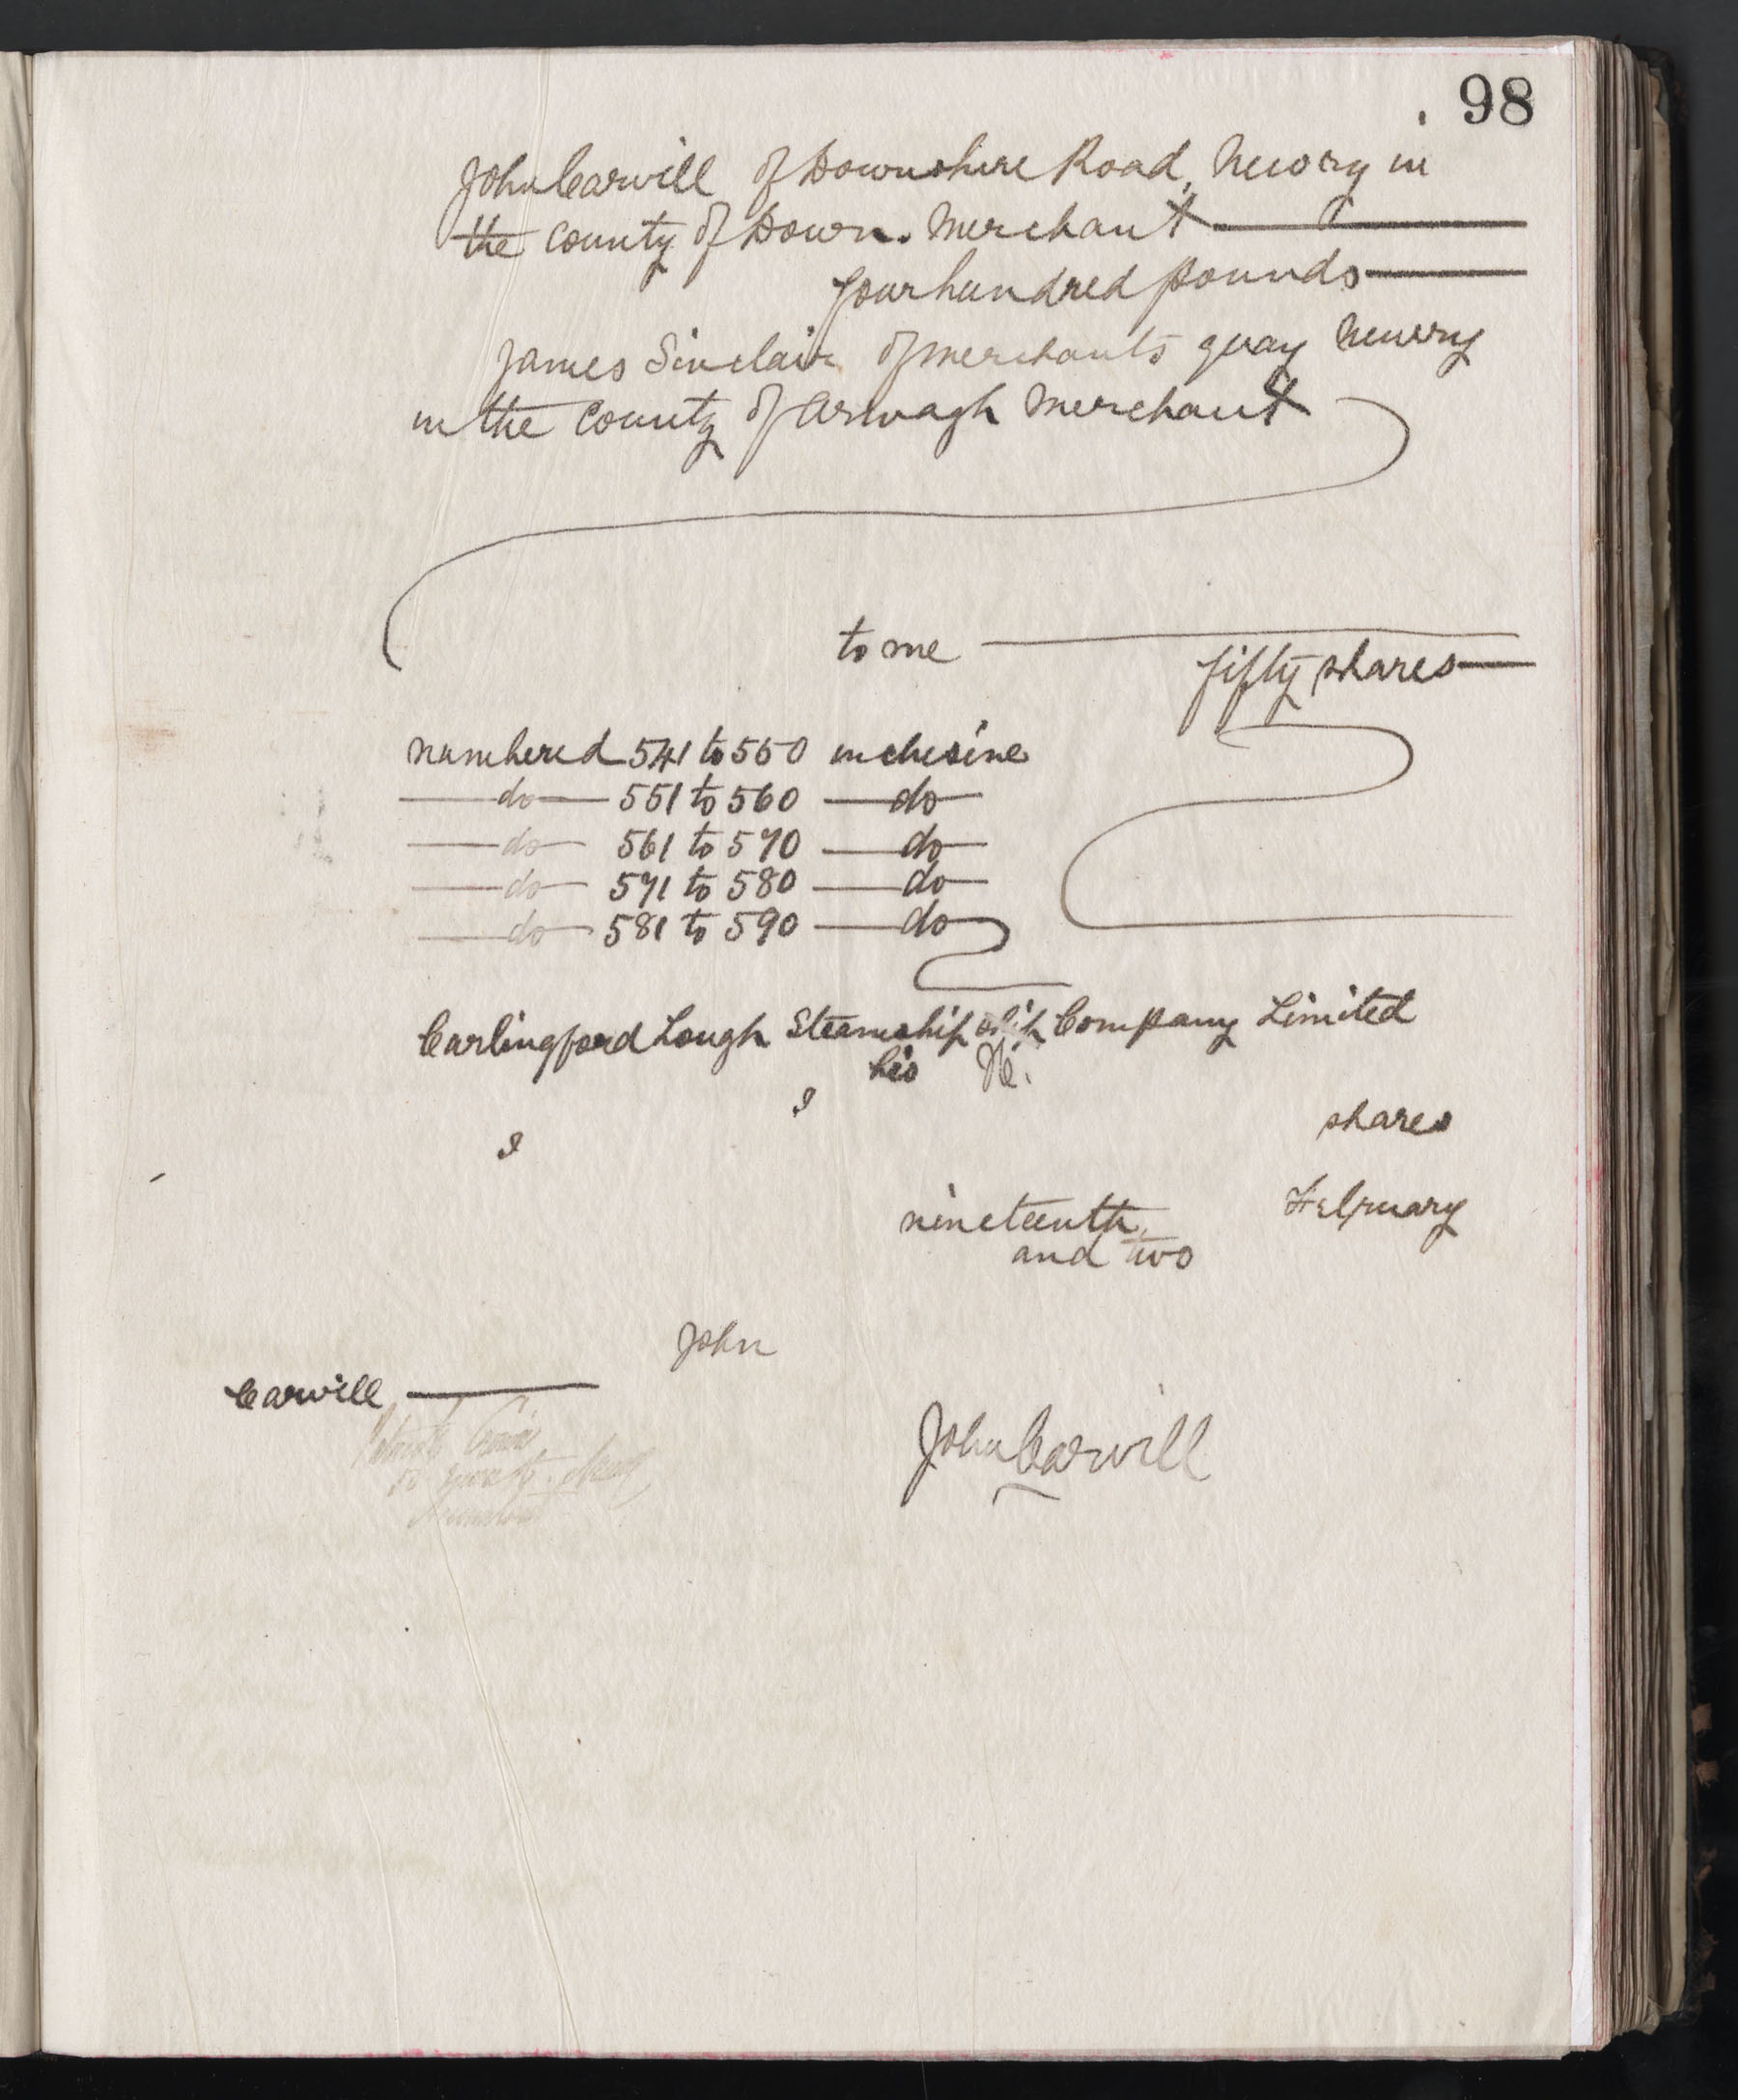 98
John Carvill of Downshire Road, Newry in
the County of Down. Merchant
four hundred pounds
James Sinclair of Merchants quay Newry
in the County of Armagh Merchant
to me
fifty shares
numbered 541 to 550 inclusive
do 551 to 560 do
do 561 to 570 do
do 571 to 580 do
do 581 to 590 do
Carlingford Lough Steamship Company Limited
his
I
shares
I
nineteenth February
and two
John
Carvill
John Carvill